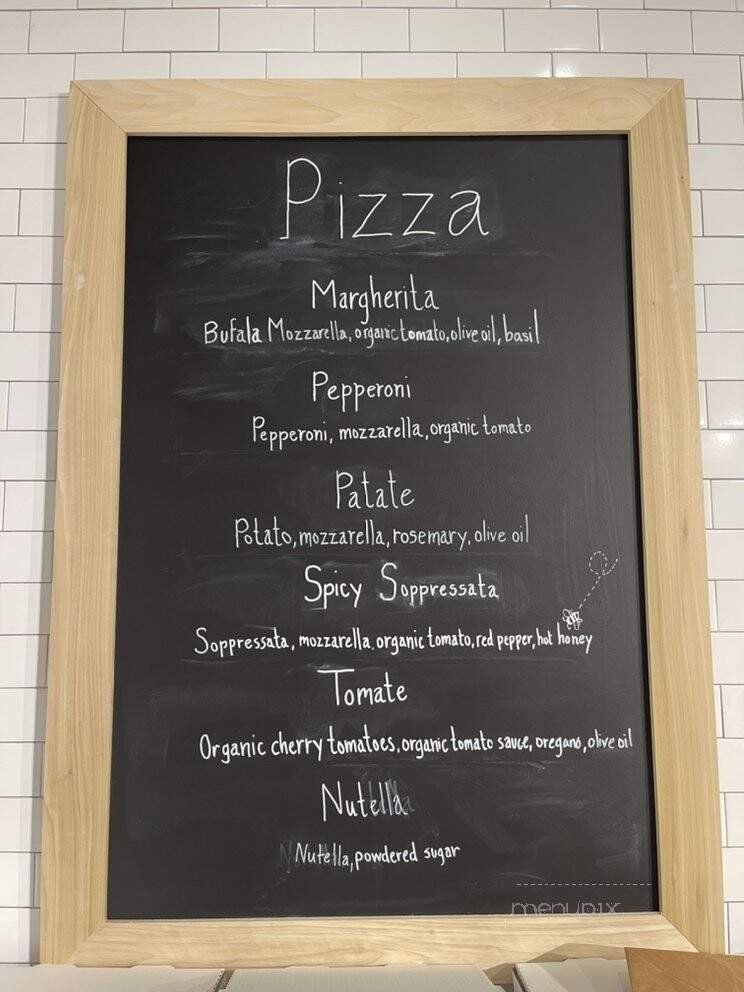 Pizza
Margherita
Bufala Mozzarella, organic tomato, olive oil, basil
Pepperoni
Pepperoni, mozzarella, organic tomato
Patate
Potato, mozzarella, rosemary, olive oil
Spicy Soppressata
Soppressata, mozzarella, organic tomato, red pepper, hot honey
Tomate
Organic cherry tomatoes, organic tomato sauce, oregano, olive oil
Nutella
Nutella, powdered sugar
menupix